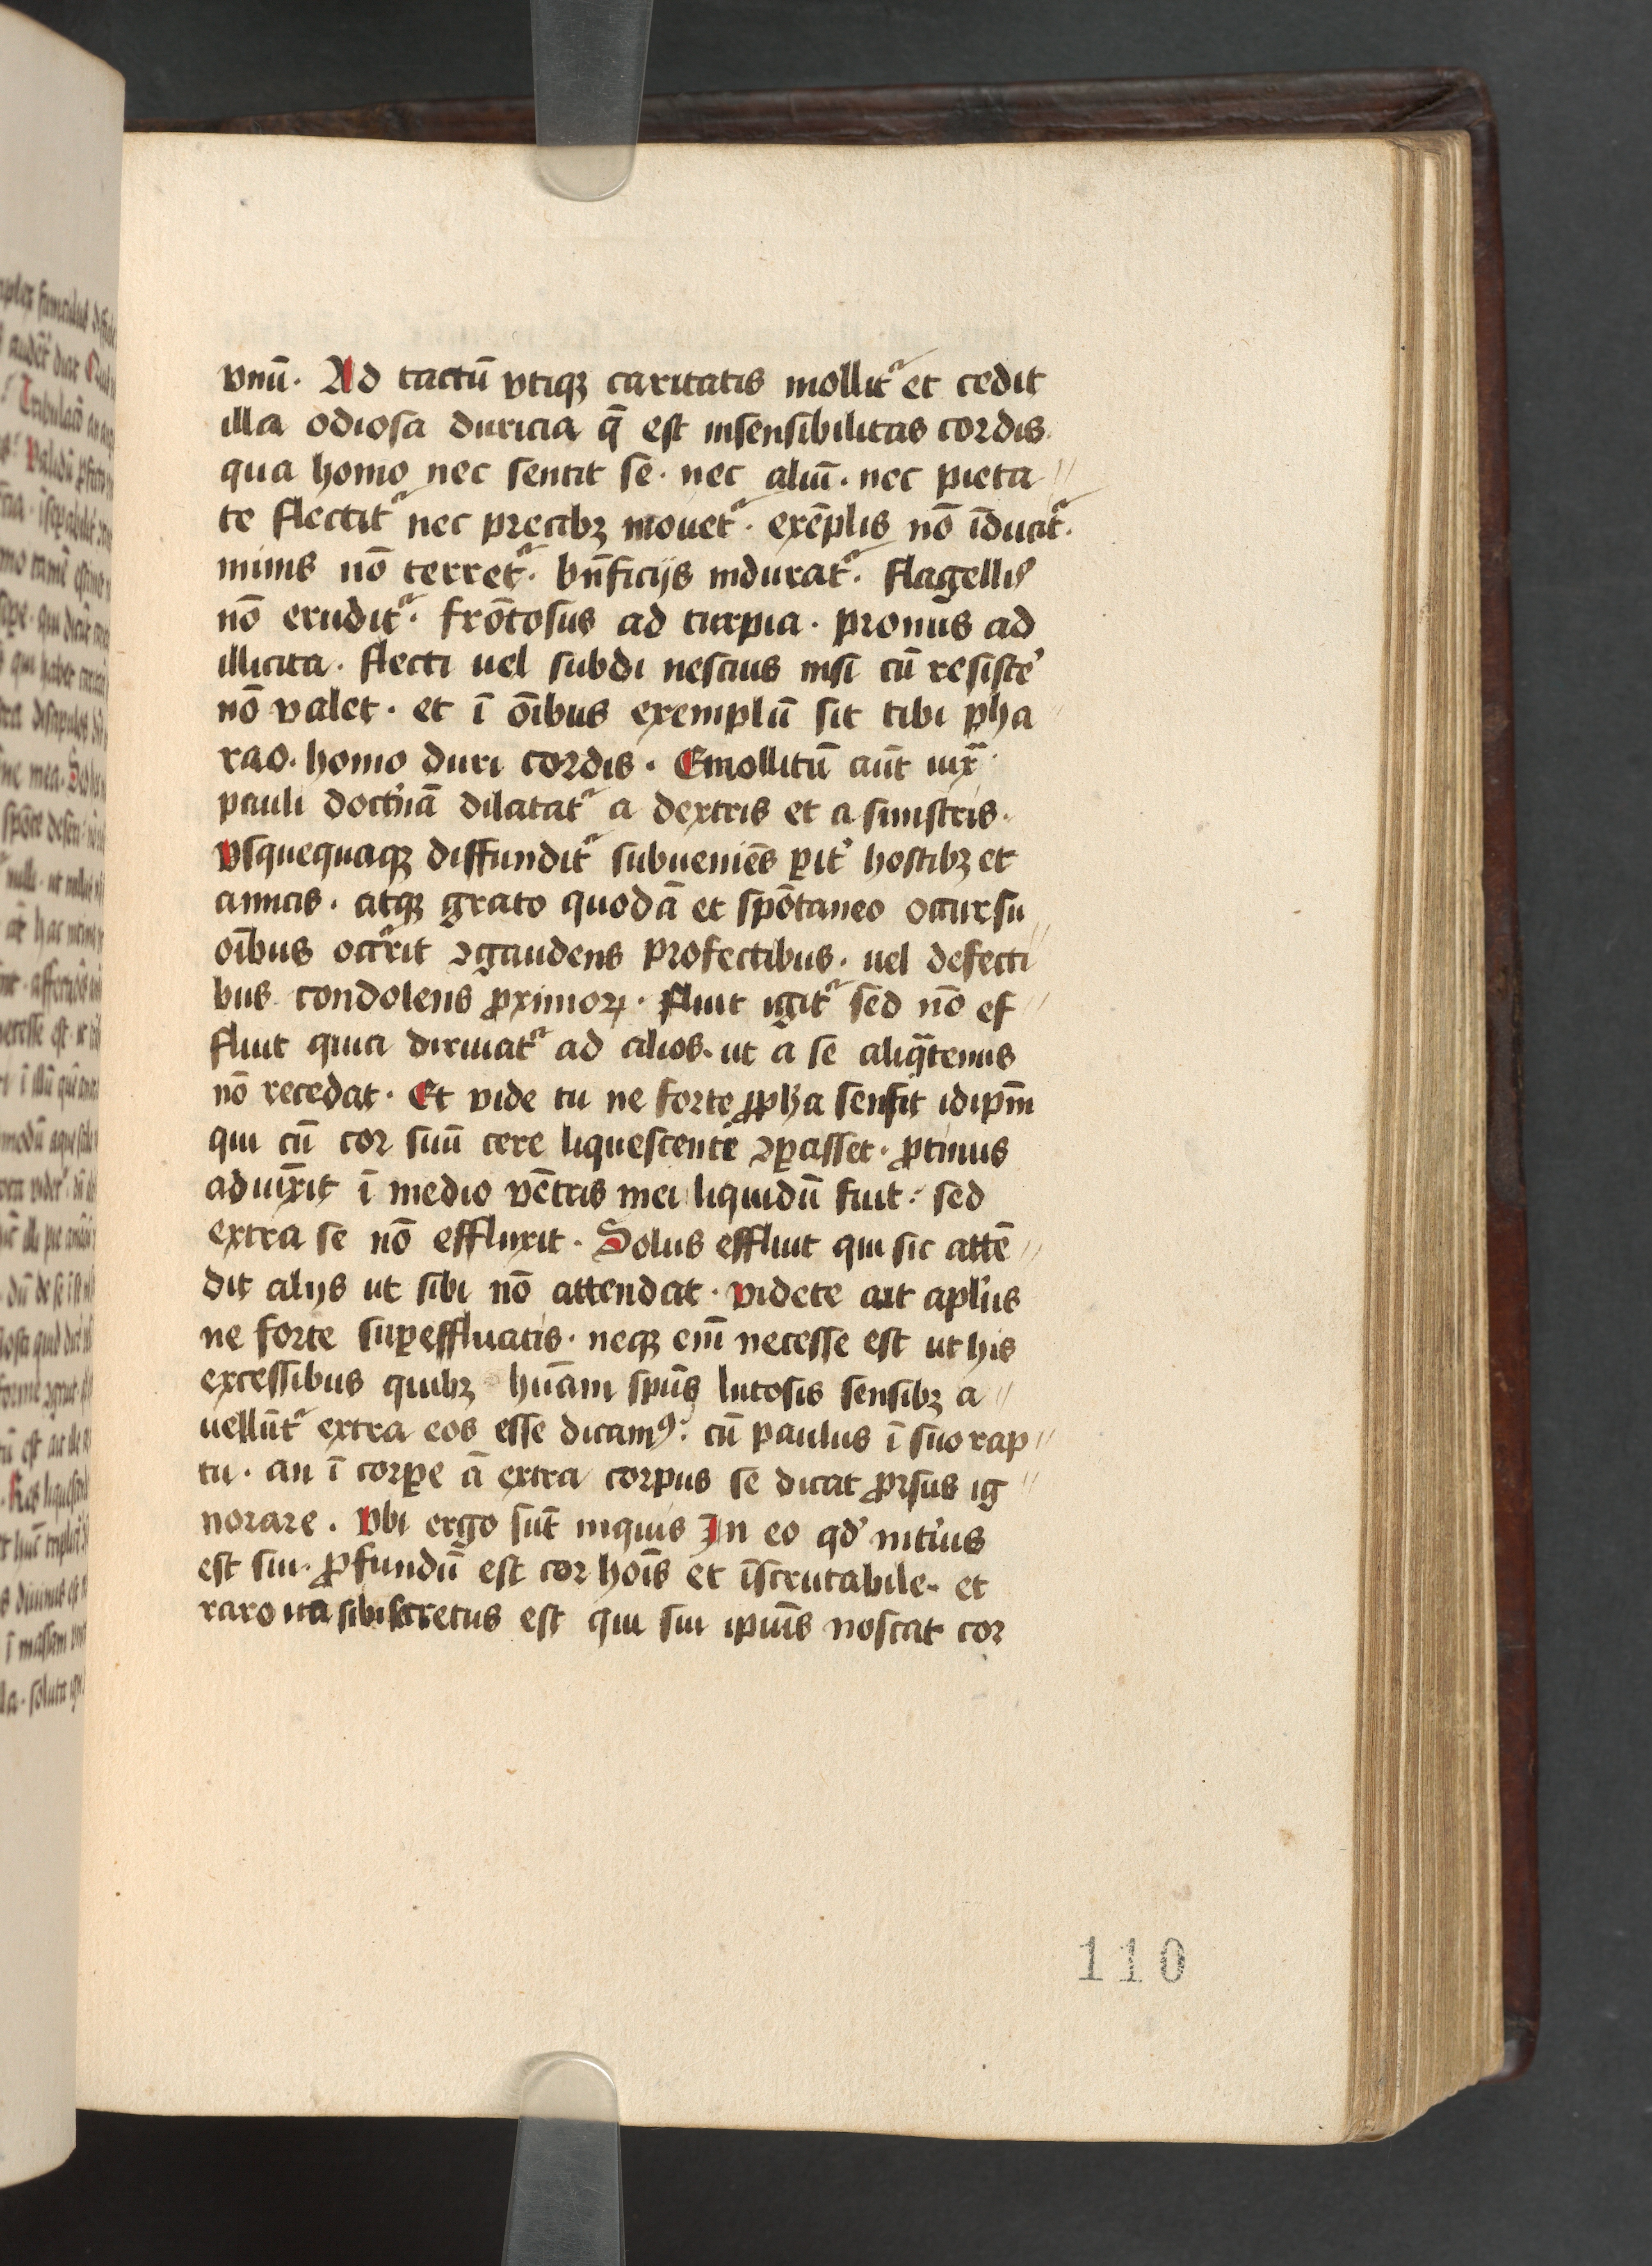 vnū. Ad tactū vtiqꝫ caritatis mollitᷣ et cedit
illa odiosa duricia q̄ est insensibilitas cordis.
qua homo nec sentit se. nec aliū. nec pieta
te flectitᷣ nec precibꝫ mouetᷣ. exēplis nō īducitᷣ.
minis nō terretᷣ. bn̄ficijs induratᷣ. flagellis
nō eruditᷣ. frōtosus ad turpia. pronus ad
illicita. flecti uel subdi nescius nisi cū resiste᾽
nō valet. et ī oībus exemplū sit tibi pha
rao. homo duri cordis. Emollitū aūt iuxᷓ
pauli doct᾽nā dilatatᷣ a dextris et a sinistris.
vsquequaqꝫ diffunditᷣ subueniēs ꝑit᾽ hostibꝫ et
amicis. atqꝫ grato quodā et spōtaneo occursu
oībus occᷣrit ꝯgaudens profectibus. uel defecti
bus condolens ꝓximoꝝ. fluit igitᷣ sed nō ef
fluit quia diriuatᷣ ad alios. ut a se aliqᷓtenus
nō recedat. Et vide tu ne forte ꝓph̄a sensit idipm̄
qui cū cor suū cere liquescenti ꝯꝑasset. ꝓtinus
adiūxit ī medio vētris mei liquidū fuit: sed
extra se nō effluxit. Solus effluit qui sic attē
dit alijs ut sibi nō attendat. videte ait apl᾽us
ne forte suꝑeffluatis. neqꝫ em̄ necesse est ut his
excessibus quibꝫ hūani spūs lutosis sensibꝫ a
uellūtᷣ extra eos esse dicamꝰ: cū paulus ī suo rap
tu. an ī corꝑe ā extra corpus se dicat ꝓrsus ig
norare. Vbi ergo sūt inquis In eo qd᾽ int᾽ius
est sui. ꝓfundū est cor hoīs et īscrutabile. et
raro ita sibi secretus est qui sui ip̄ius noscat cor
110